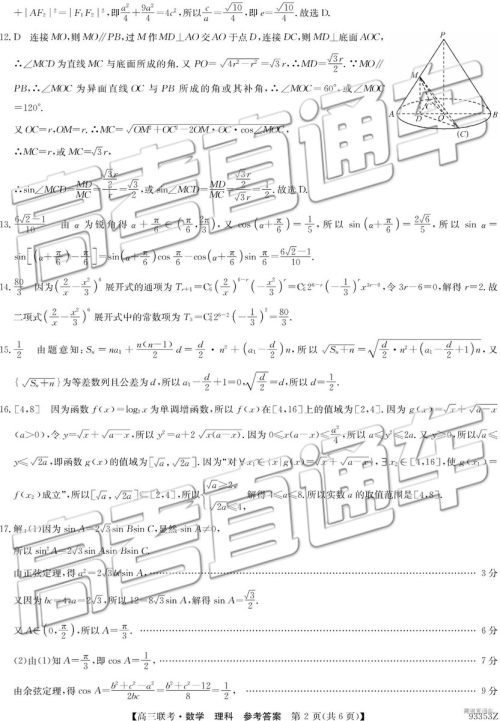 +|AF₂|²=|F₁F₂|²,即a²/4+9a²/4=4c²,所以c/a=√10/4,即e=√10/4.故选D.
12.D 连接MO,则MO∥PB,过M作MD⊥AO交AO于点D,连接DC,则MD⊥底面AOC,
∴∠MCD为直线MC与底面所成的角.又PO=√(4r²-r²)=√3r,∴MD=√3r/2.∵MO∥
PB,∴∠MOC为异面直线OC与PB所成的角或其补角,∴∠MOC=60°,或∠MOC
=120°.
又OC=r,OM=r.∴MC=√(OM²+OC²-2OM·OC·cos∠MOC),
∴MC=r,或MC=√3r,
∴sin∠MCD=MD/MC=(√3r/2)/r=√3/2,或sin∠MCD=MD/MC=(√3r/2)/(√3r)=1/2.故选D.
P
M
A
D
O
B
(C)
13.(6√2-1)/10 由α为锐角得α+π/6∈(π/6,2π/3),又cos(α+π/6)=1/5,所以sin(α+π/6)=2√6/5,所以sin α=
sin[(α+π/6)-π/6]=sin(α+π/6)cos π/6-cos(α+π/6)sin π/6=(6√2-1)/10.
14.80/3 因为(2/x-x²/3)⁶展开式的通项为Tᵣ₊₁=C₆ʳ(2/x)⁶⁻ʳ(-x²/3)ʳ=C₆ʳ2⁶⁻ʳ(-1/3)ʳx³ʳ⁻⁶,令3r-6=0,解得r=2.故
二项式(2/x-x²/3)⁶展开式中的常数项为T₃=C₆²2⁶⁻²(-1/3)²=80/3.
15.1/2 由题意知:Sₙ=na₁+n(n-1)/2 d=d/2·n²+(a₁-d/2)n,所以√(Sₙ+n)=√(d/2·n²+(a₁-d/2+1)n),又
{√(Sₙ+n)}为等差数列且公差为d,所以a₁-d/2+1=0,√(d/2)=d,所以d=1/2.
16.[4,8] 因为函数f(x)=log₂x为单调增函数,所以f(x)在[4,16]上的值域为[2,4].因为g(x)=√x+√(a-x)
(a>0),令y=√x+√(a-x),所以y²=a+2√(x(a-x)).因为0≤x(a-x)≤a²/4,所以a≤y²≤2a.又y>0,所以√a≤
y≤√(2a),即函数g(x)的值域为[√a,√(2a)].因为“对∀x₁∈{x|g(x)=√x+√(a-x)},∃x₂∈[4,16],使g(x₁)=
f(x₂)成立”,所以[√a,√(2a)]⊆[2,4],所以{√a≥2, √(2a)≤4,解得4≤a≤8.所以实数a的取值范围是[4,8].
17.解:(1)因为sin A=2√3sin Bsin C,显然sin A≠0,
所以sin²A=2√3sin Asin Bsin C.
由正弦定理,得a²=2√3bcsin A, 3分
又因为bc=4,a=2√3,所以12=8√3sin A,解得sin A=√3/2.
又A∈(0,π/2),所以A=π/3. 6分
(2)由(1)知A=π/3,即cos A=1/2, 7分
由余弦定理,得cos A=(b²+c²-a²)/2bc=(b²+c²-12)/8=1/2, 9分
【高三联考·数学 理科 参考答案 第2页(共6页)】
93353Z
高考直通车
高考直通车
高考直通车